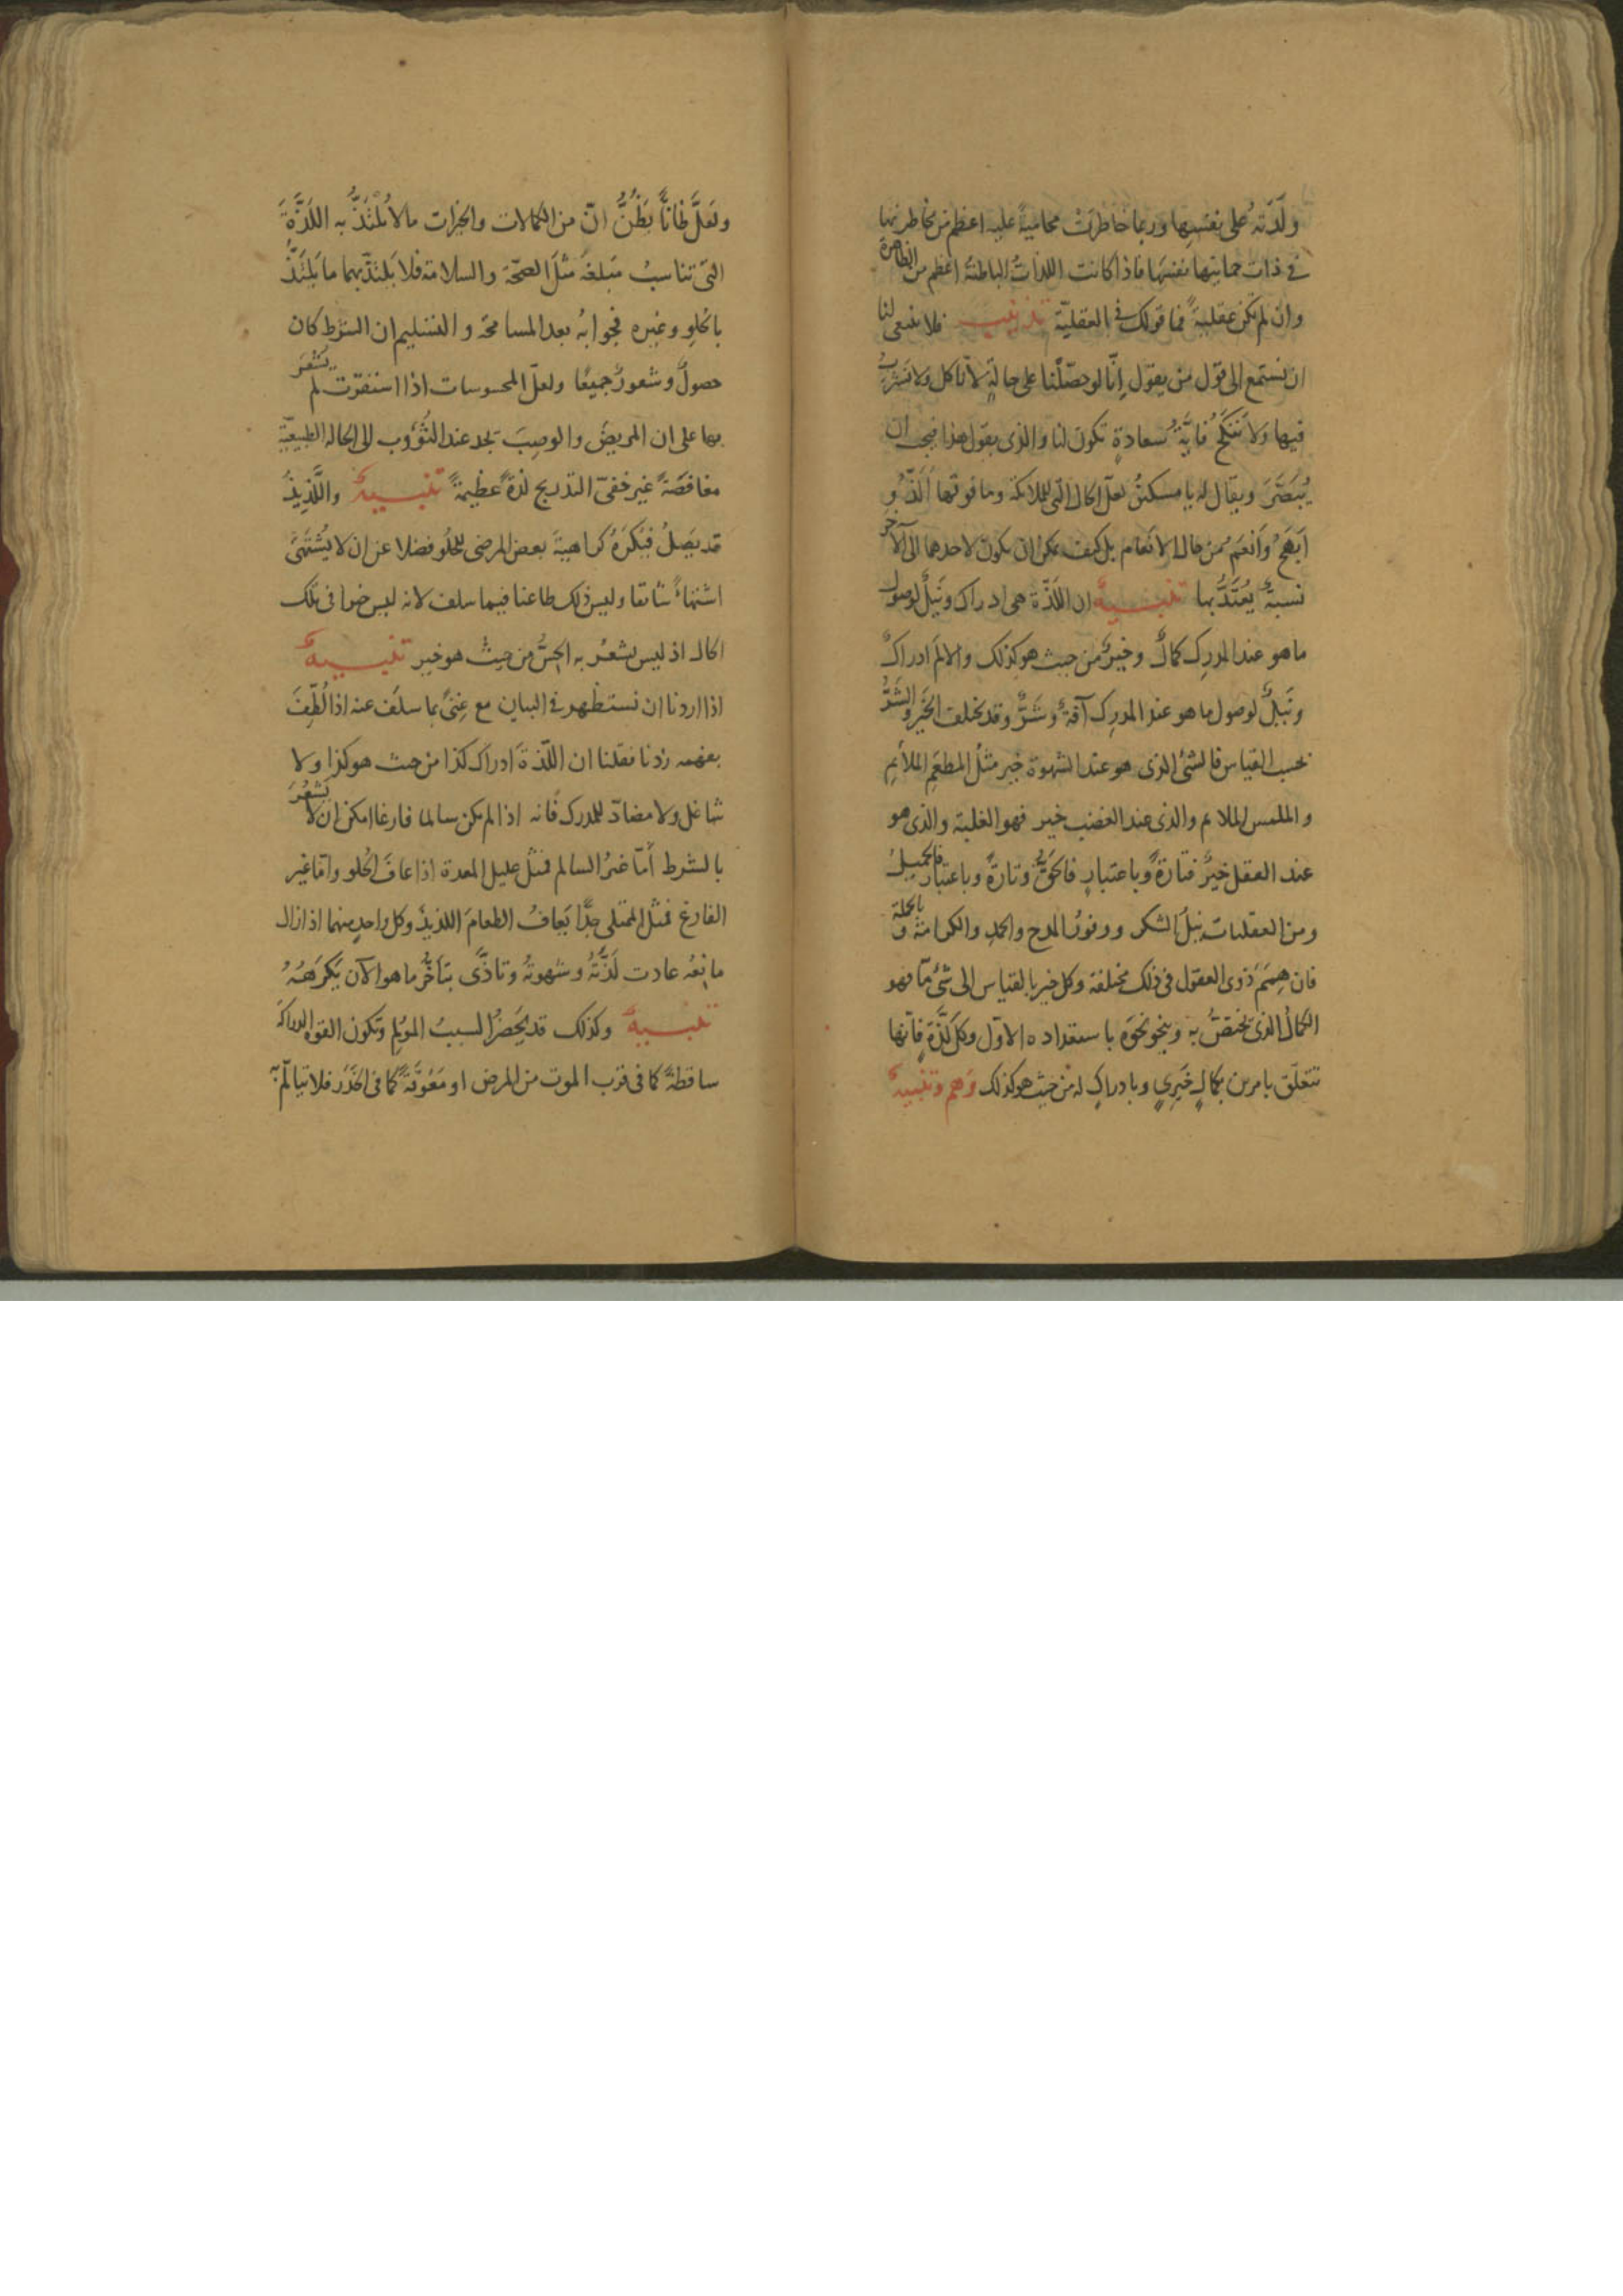 ولدته على نفسها وربما خاطرت محامية عليه اعظم من مخاطرتها
في ذات حمايتها نفسها فاذا كانت اللذات الباطنة اعظم من الظاهرة
وان لم تكن عقلية فما قولك في العقلية تذنيب فلا ينبغى لنا
ان نستمع الى قول من يقول انّا لو حصّلنا على حالةٍ لا نأكل ولا نشرب
فيها ولا ننكح فايّة سعادةٍ تكون لنا والذى يقول هذا فيجب ان
يُبَصَّرَ ويقال له يا مسكين لعلّ الحال التى للملائكة وما فوقها ألذّ و
أبهج وأنعم من حال الانعام بل كيف يمكن ان يكون لاحدهما الى الآخر
نسبةٌ يُعتَدُّ بها تنبيهٌ ان اللذّة هى ادراك ونيلٌ لوصول
ما هو عند المدرِك كمالٌ وخيرٌ من حيث هو كذلك والالم ادراكٌ
ونيلٌ لوصول ما هو عند المدرِك آفةٌ وشرٌّ وقد يختلف الخير والشرّ
بحسب القياس فالشئ الذى هو عند الشهوة خير مثلُ المطعَمِ الملائم
والملمس الملائم والذى عند الغضب خير فهو الغلبة والذى هو
عند العقل خيرٌ فتارةً وباعتبارٍ فالحقّ وتارةً وباعتبار فالجميلُ
ومن العقليات نيلُ الشكر ووفورُ المدح والحمدِ والكرامة وبالجملة
فان هِمَمَ ذوى العقول فى ذلك مختلفة وكل خير بالقياس الى شئ مّا فهو
الكمالُ الذى يختصُّ به وينحو نحوَه باستعداده الاوّل وكل لذّةٍ فانّها
تتعلّق بامرين بكمالٍ خَيرىٍ وبادراكٍ له من حيث هو كذلك وَهم وتنبيهٌ
ولعلّ ظانّاً يظنُّ انّ من الكمالات والخيرات ما لا يُلتَذُّ به اللذّةَ
التى تناسبُ مبلغه مثلَ الصحّة والسلامة فلا يلتذّ بهما ما يلتذُّ
بالحلو وغيره فجوابُه بعد المسامحة والتسليم ان الشرط كان
حصولٌ وشعورٌ جميعًا ولعلّ المحسوسات اذا استقرّت لم يشعر
بها على ان المريض والوصِبَ يجد عند الثُّؤوب الى الحاله الطبيعيّة
مغافصَةً غيرَ خفىّ التدريج لذةً عظيمةً تنبيهٌ واللذيذُ
قد يصلُ فيُكرَهُ كراهيةَ بعض المرضى للحُلو فضلا عن ان لا يُشتهَى
اشتهاءً شائقا وليس ذلك طاعنا فيما سلف لانه ليس خيرا فى تلك
الحال اذ ليس يشعرُ به الحِسُّ من حيث هو خير تنبيهٌ
اذا اردنا ان نستظهر فى البيان مع غِنىً بما سلَف عنه اذا لُطِّفَ
بفهمه زدنا فقلنا ان اللذةَ ادراك كذا من حيث هو كذا ولا
شاغل ولا مضادّ للمدرك فانه اذا لم يكن سالما فارغا امكن ان لا يشعُرَ
بالشرط أمّا غيرُ السالم فمثلُ عليل المعدة اذا عافَ الحلو وامّا غير
الفارغ فمثل الممتلى جدًّا يعافُ الطعامَ اللذيذَ وكل واحدٍ منهما اذا زال
مانعُه عادت لذّتُهُ وشهوتُهُ وتاذّى بتأخُّر ما هو الآن يكرَهُهُ
تنبيهٌ وكذلك قد يَحضُرُ السببُ المؤلِم وتكون القوه الدراكة
ساقطةً كما فى قرب الموت من المرض او مَعُوقةً كما فى الخَدَر فلا تتألّم به